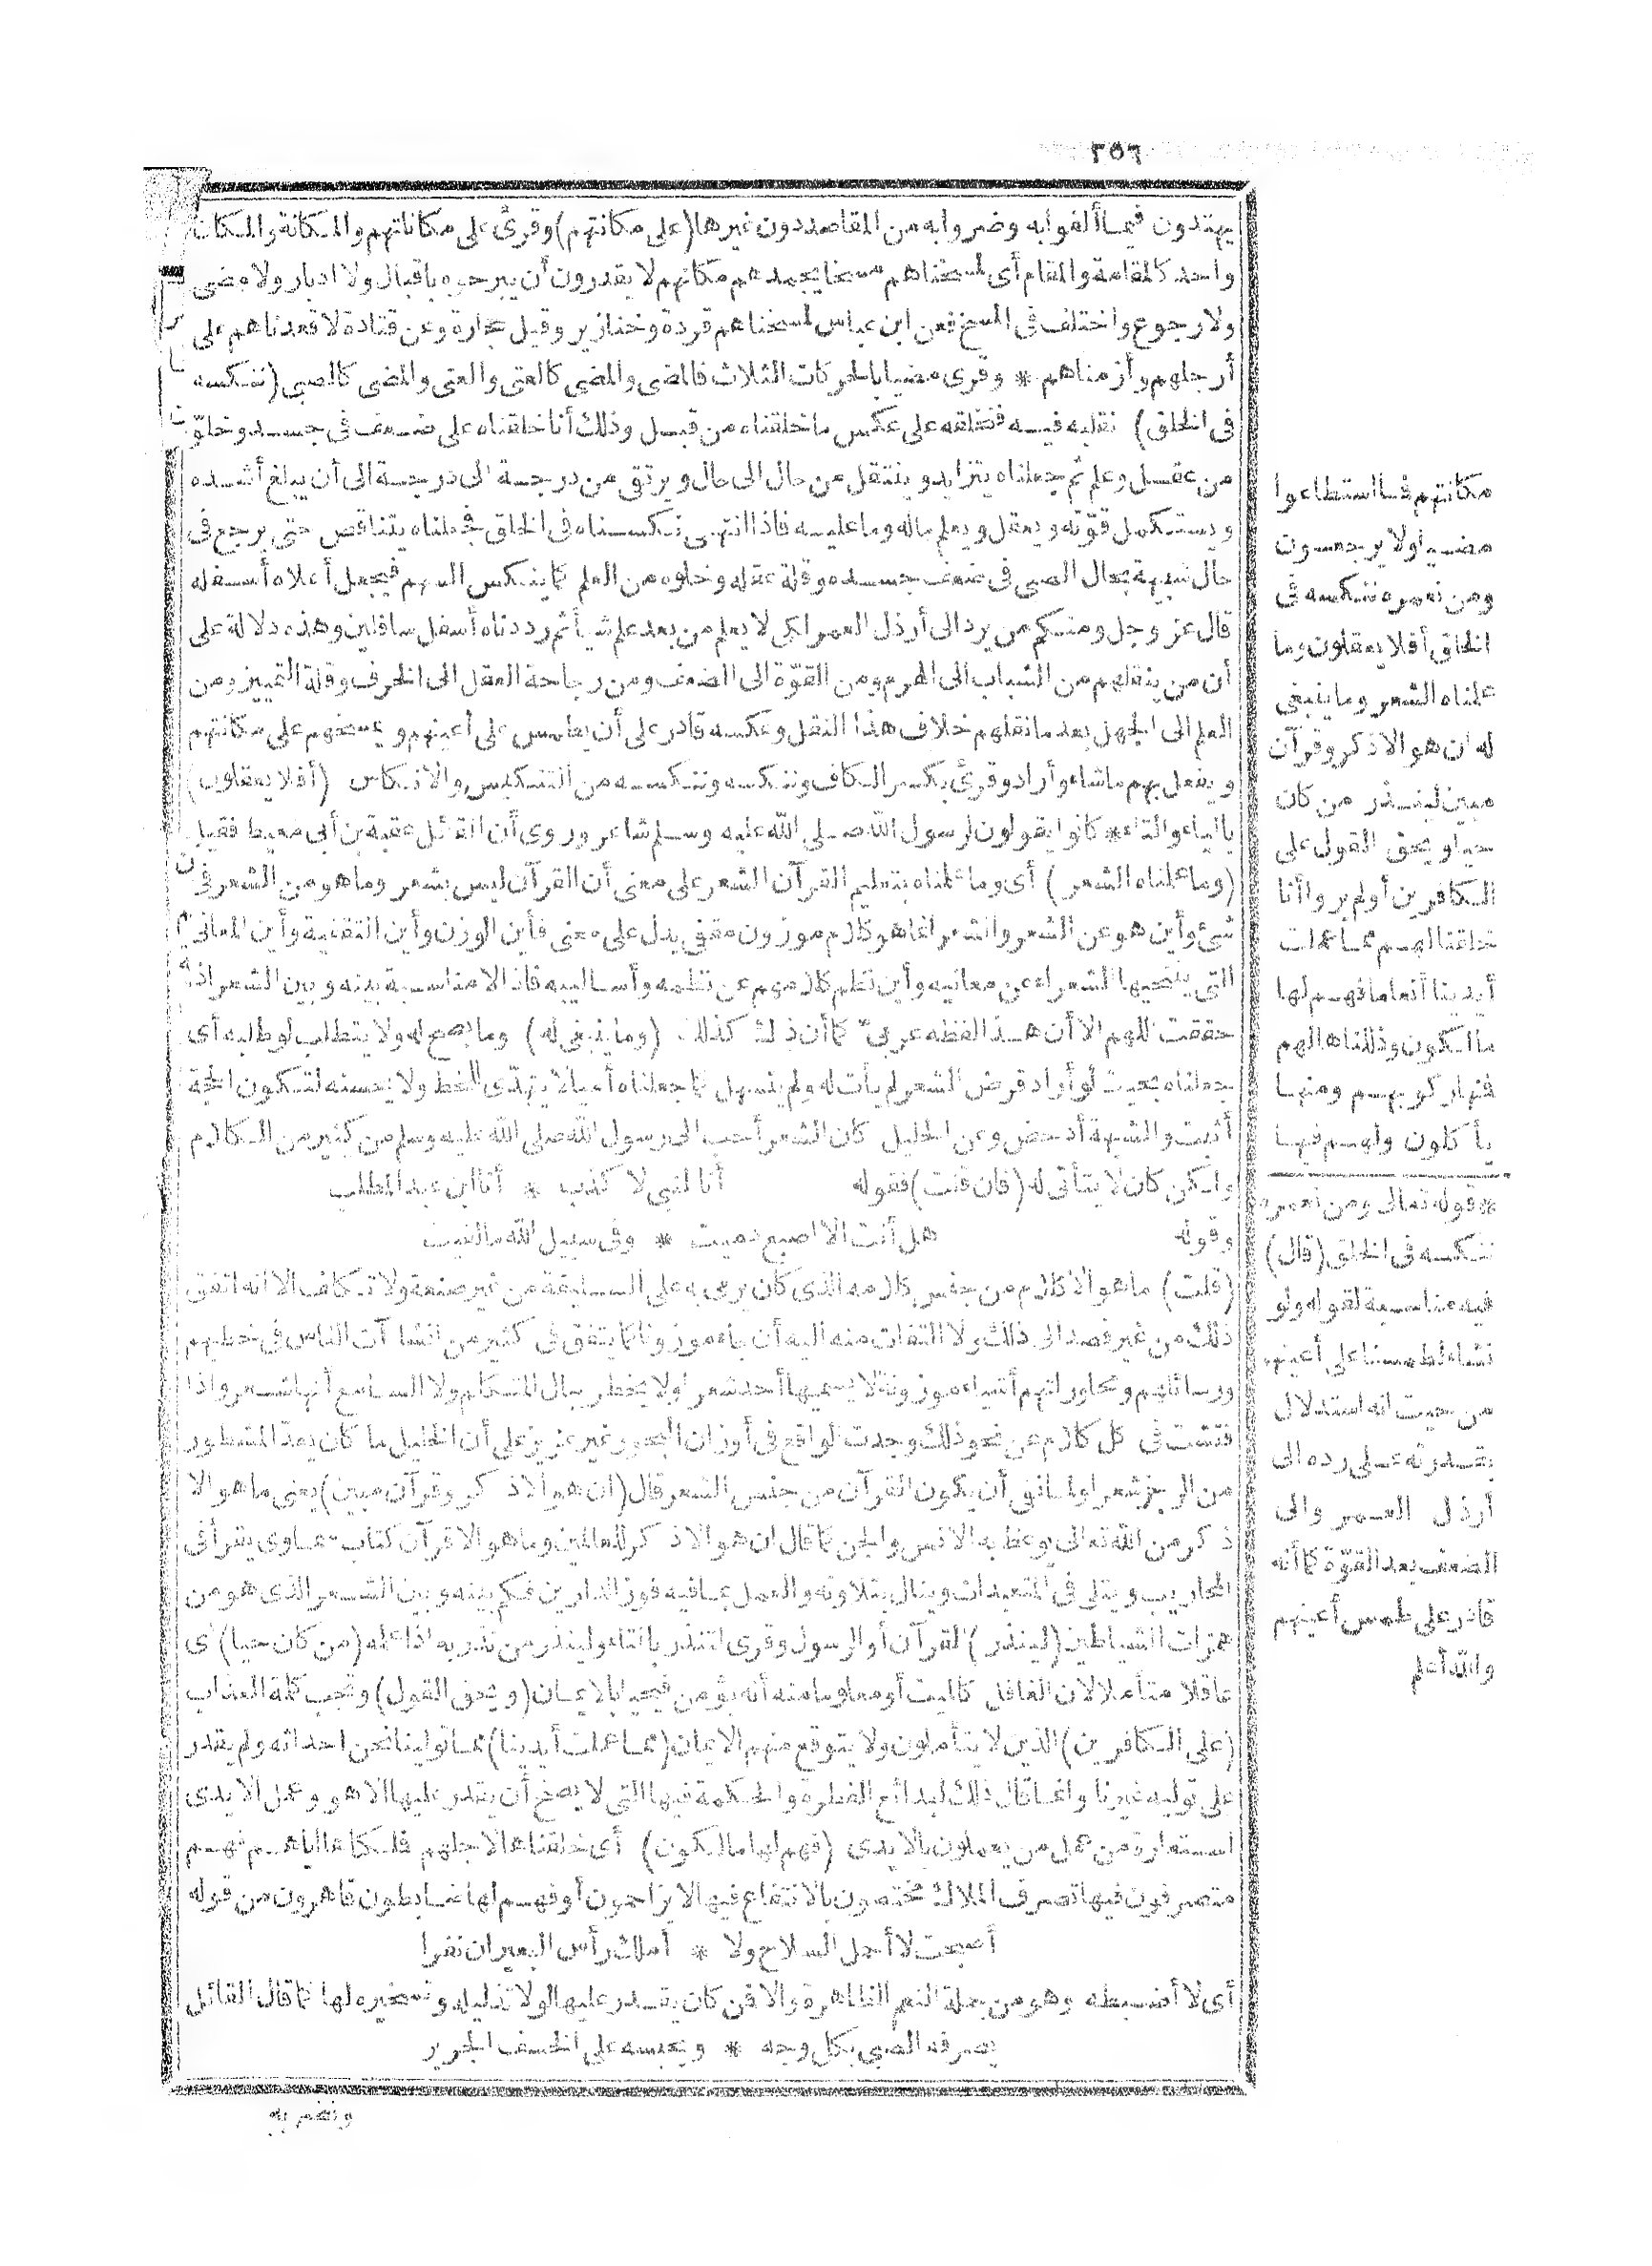 ٢٥٦
يهتدون فيما ألفوا به وضروا به من المقاصد دون غيرها (على مكانتهم) وقرئ على مكاناتهم والمكانة والمكان
واحد كالمقامة والمقام أى لمسخناهم مسخا يجمدهم مكانهم لا يقدرون أن يبرحوه باقبال ولا ادبار ولا مضى
ولا رجوع واختلف فى المسخ فعن ابن عباس لمسخناهم قردة وخنازير وقيل حجارة وعن قتادة لا قعدناهم على
أرجلهم وأزمناهم * وقرئ مضيا بالحركات الثلاث فالمضى والمضى كالعتى والعتى والمضى كالصبى (ننكسه
فى الخلق) نقلبه فيه فنخلقه على عكس ما خلقناه من قبل وذلك أنا خلقناه على ضعف فى جسد وخلوّ
من عقل وعلم ثم جعلناه يتزايد وينتقل من حال الى حال ويرتقى من درجة الى درجة الى أن يبلغ أشده
ويستكمل قوّته ويعقل ويعلم ماله وما عليه فاذا انتهى نكسناه فى الخلق فجعلناه يتناقص حتى يرجع فى
حال شبيهة بحال الصبى فى ضعف جسده وقلة عقله وخلوه من العلم كما ينكس السهم فيجعل أعلاه أسفله
قال عز وجل ومنكم من يرد الى أرذل العمر لكى لا يعلم من بعد علم شيأ ثم رددناه أسفل سافلين وهذه دلالة على
أن من ينقلهم من الشباب الى الهرم ومن القوّة الى الضعف ومن رجاحة العقل الى الخرف وقلة التمييز ومن
العلم الى الجهل بعد ما نقلهم خلاف هذا النقل وعكسه قادر على أن يطمس على أعينهم ويمسخهم على مكانتهم
ويفعل بهم ما شاء وأراد وقرئ بكسر الكاف وننكسه وننكسه من التنكيس والانكاس (أفلا يعقلون)
بالياء والتاء * كانوا يقولون لرسول الله صلى الله عليه وسلم شاعر وروى أن القائل عقبة بن أبى معيط فقيل
(وما علمناه الشعر) أى وما علمناه بتعليم القرآن الشعر على معنى أن القرآن ليس بشعر وما هو من الشعر فى
شئ وأين هو عن الشعر والشعر انما هو كلام موزون مقفى يدل على معنى فأين الوزن وأين التقفية وأين المعانى
التى ينتحيها الشعراء عن معانيه وأين نظم كلامهم عن نظمه وأساليبه فاذا لا مناسبة بينه وبين الشعر اذا
حققت اللهم الا أن هذا لفظه عربىّ كما أن ذلك كذلك (وما ينبغى له) وما يصح له ولا يتطلب لو طلبه أى
جعلناه بحيث لو أراد قرض الشعر لم يأت له ولم يتسهل كما جعلناه أميا لا يتهدّى للخط ولا يحسنه لتكون الحجة
أثبت والشبهة أدحض وعن الخليل كان الشعر أحب الى رسول الله صلى الله عليه وسلم من كثير من الكلام
ولكن كان لا يتأتى له (فان قلت) فقوله أنا النبى لا كذب * أنا ابن عبد المطلب
وقوله هل أنت الا اصبع دميت * وفى سبيل الله ما لقيت
(قلت) ما هو الا كلام من جنس كلامه الذى كان يرمى به على السليقة من غير صنعة ولا تكلف الا انه اتفق
ذلك من غير قصد الى ذلك ولا التفات منه اليه أن جاء موزونا كما يتفق فى كثير من انشا آت الناس فى خطبهم
ورسائلهم ومحاوراتهم أشياء موزونة لا يسميها أحد شعرا ولا يخطر ببال المتكلم ولا السامع أنها شعر واذا
فتشت فى كل كلام عن نحو ذلك وجدت الواقع فى أوزان البحور غير عزيز على أن الخليل ما كان يعدّ المشطور
من الرجز شعرا ولما نفى أن يكون القرآن من جنس الشعر قال (ان هو الا ذكر وقرآن مبين) يعنى ما هو الا
ذكر من الله تعالى يوعظ به الانس والجن كما قال ان هو الا ذكر للعالمين وما هو الا قرآن كتاب سماوى يقرأ فى
المحاريب ويتلى فى المتعبدات وينال بتلاوته والعمل بما فيه فوز الدارين فكم بينه وبين الشعر الذى هو من
همزات الشياطين (لينذر) القرآن أو الرسول وقرئ لتنذر بالتاء ولينذر من نذر به اذا علمه (من كان حيا) أى
عاقلا متأملا لان الغافل كالميت أو معلوما منه أنه يؤمن فيحيا بالايمان (ويحق القول) وتجب كلمة العذاب
(على الكافرين) الذين لا يتأملون ولا يتوقع منهم الايمان (مما عملت أيدينا) مما تولينا نحن احداثه ولم يقدر
على توليه غيرنا وانما قال ذلك لبدائع الفطرة والحكمة فيها التى لا يصح أن يقدر عليها الا هو وعمل الايدى
استعارة من عمل من يعملون بالايدى (فهم لها مالكون) أى خلقناها لاجلهم فملكناها اياهم فهم
متصرفون فيها تصرف الملاك مختصون بالانتفاع فيها لا يزاحمون أو فهم لها ضابطون قاهرون من قوله
أصبحت لا أحمل السلاح ولا * أملك رأس البعير ان نفرا
أى لا أضبطه وهو من جملة النعم الظاهرة والا فمن كان يقدر عليها لولا تذليله وتسخيره لها كما قال القائل
يصرفه الصبى بكل وجه * ويحبسه على الخسف الجرير
ونضر به
مكانتهم فما استطاعوا
مضيا ولا يرجعون
ومن نعمره ننكسه فى
الخلق أفلا يعقلون وما
علمناه الشعر وما ينبغى
له ان هو الا ذكر وقرآن
مبين لينذر من كان
حيا ويحق القول على
الكافرين أولم يروا أنا
خلقنا لهم مما عملت
أيدينا أنعاما فهم لها
مالكون وذللناها لهم
فمنها ركوبهم ومنها
يأكلون ولهم فيها
* قوله تعالى ومن نعمره
ننكسه فى الخلق (قال)
فيه مناسبة لقوله ولو
نشاء لطمسنا على أعينهم
من حيث انه استدلال
بقدرته على رده الى
أرذل العمر والى
الضعف بعد القوّة كما أنه
قادر على طمس أعينهم
والله أعلم